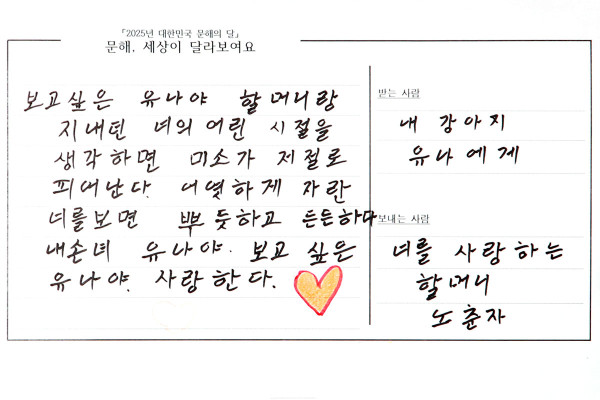 「2025년 대한민국 문해의 달」
문해, 세상이 달라보여요
보고싶은 유나야 할머니랑
지내던 너의 어린 시절을
생각하면 미소가 제절로
피어난다. 너엿하게 자란
너를보면 뿌듯하고 든든하다
내손녀 유나야. 보고 싶은
유나야. 사랑한다.
받는 사람
내 강아지
유나에게
보내는 사람
너를 사랑하는
할머니
노춘자